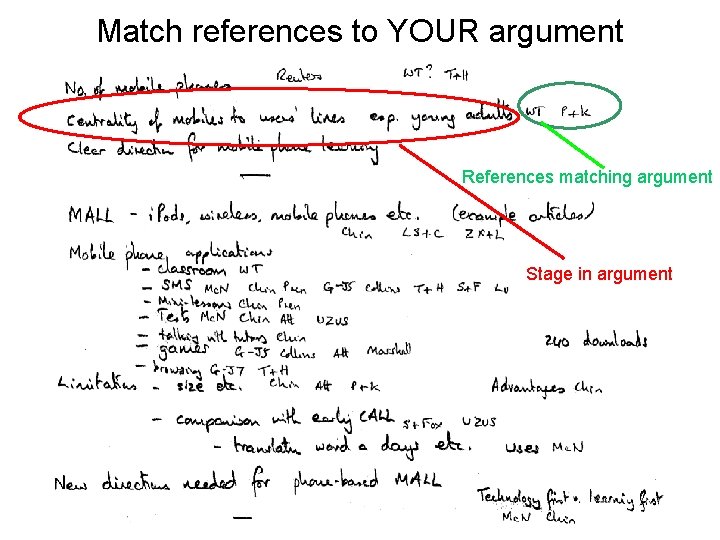 Match references to YOUR argument
No. of mobile phones Reuters WT? T+H
Centrality of mobiles to users' lines esp. young adults WT P+K
Clear direction for mobile phone learning
References matching argument
MALL - iPods, wireless, mobile phones etc. (example articles)
Chin LS+C ZK+L
Mobile phone applications
- classroom WT
Stage in argument
- SMS McN Chin Pren G-J5 Collins T+H S+F LU
- Mini-lessons Chin Pren
- Tests McN Chin Att UZUS
- talking with tutors Chin
- games G-J5 Collins Att Marshall 240 downloads
- browsing G-J7 T+H
Limitations - size etc. Chin Att P+K Advantages Chin
- comparison with early CALL S+Fox UZUS
- translation word a days etc. uses McN
New directions needed for phone-based MALL
Technology first v. learning first
McN Chin